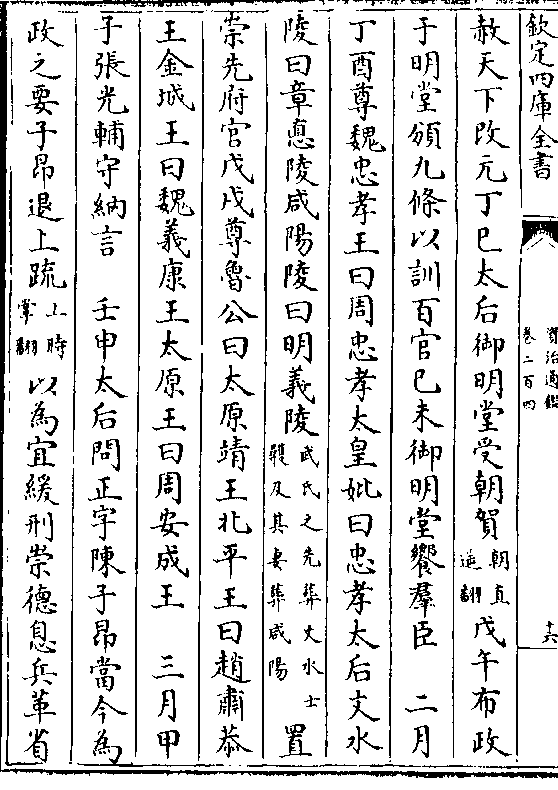 欽定四庫全書
資治通鑑
卷二百四
十六
赦天下改元丁巳太后御明堂受朝賀朝直遥翻戊午布政
于明堂頒九條以訓百官已未御明堂饗羣臣　二月
丁酉尊魏忠孝王曰周忠孝太皇妣曰忠孝太后文水
陵曰章悳陵咸陽陵曰明義陵武氏之先葬文水士彠及其妻葬咸陽置
崇先府官戊戌尊魯公曰太原靖王北平王曰趙肅恭
王金城王曰魏義康王太原王曰周安成王　三月甲
子張光輔守納言　壬申太后問正字陳子昂當今為
政之要子昂退上疏上時掌翻以為宜緩刑崇德息兵革省